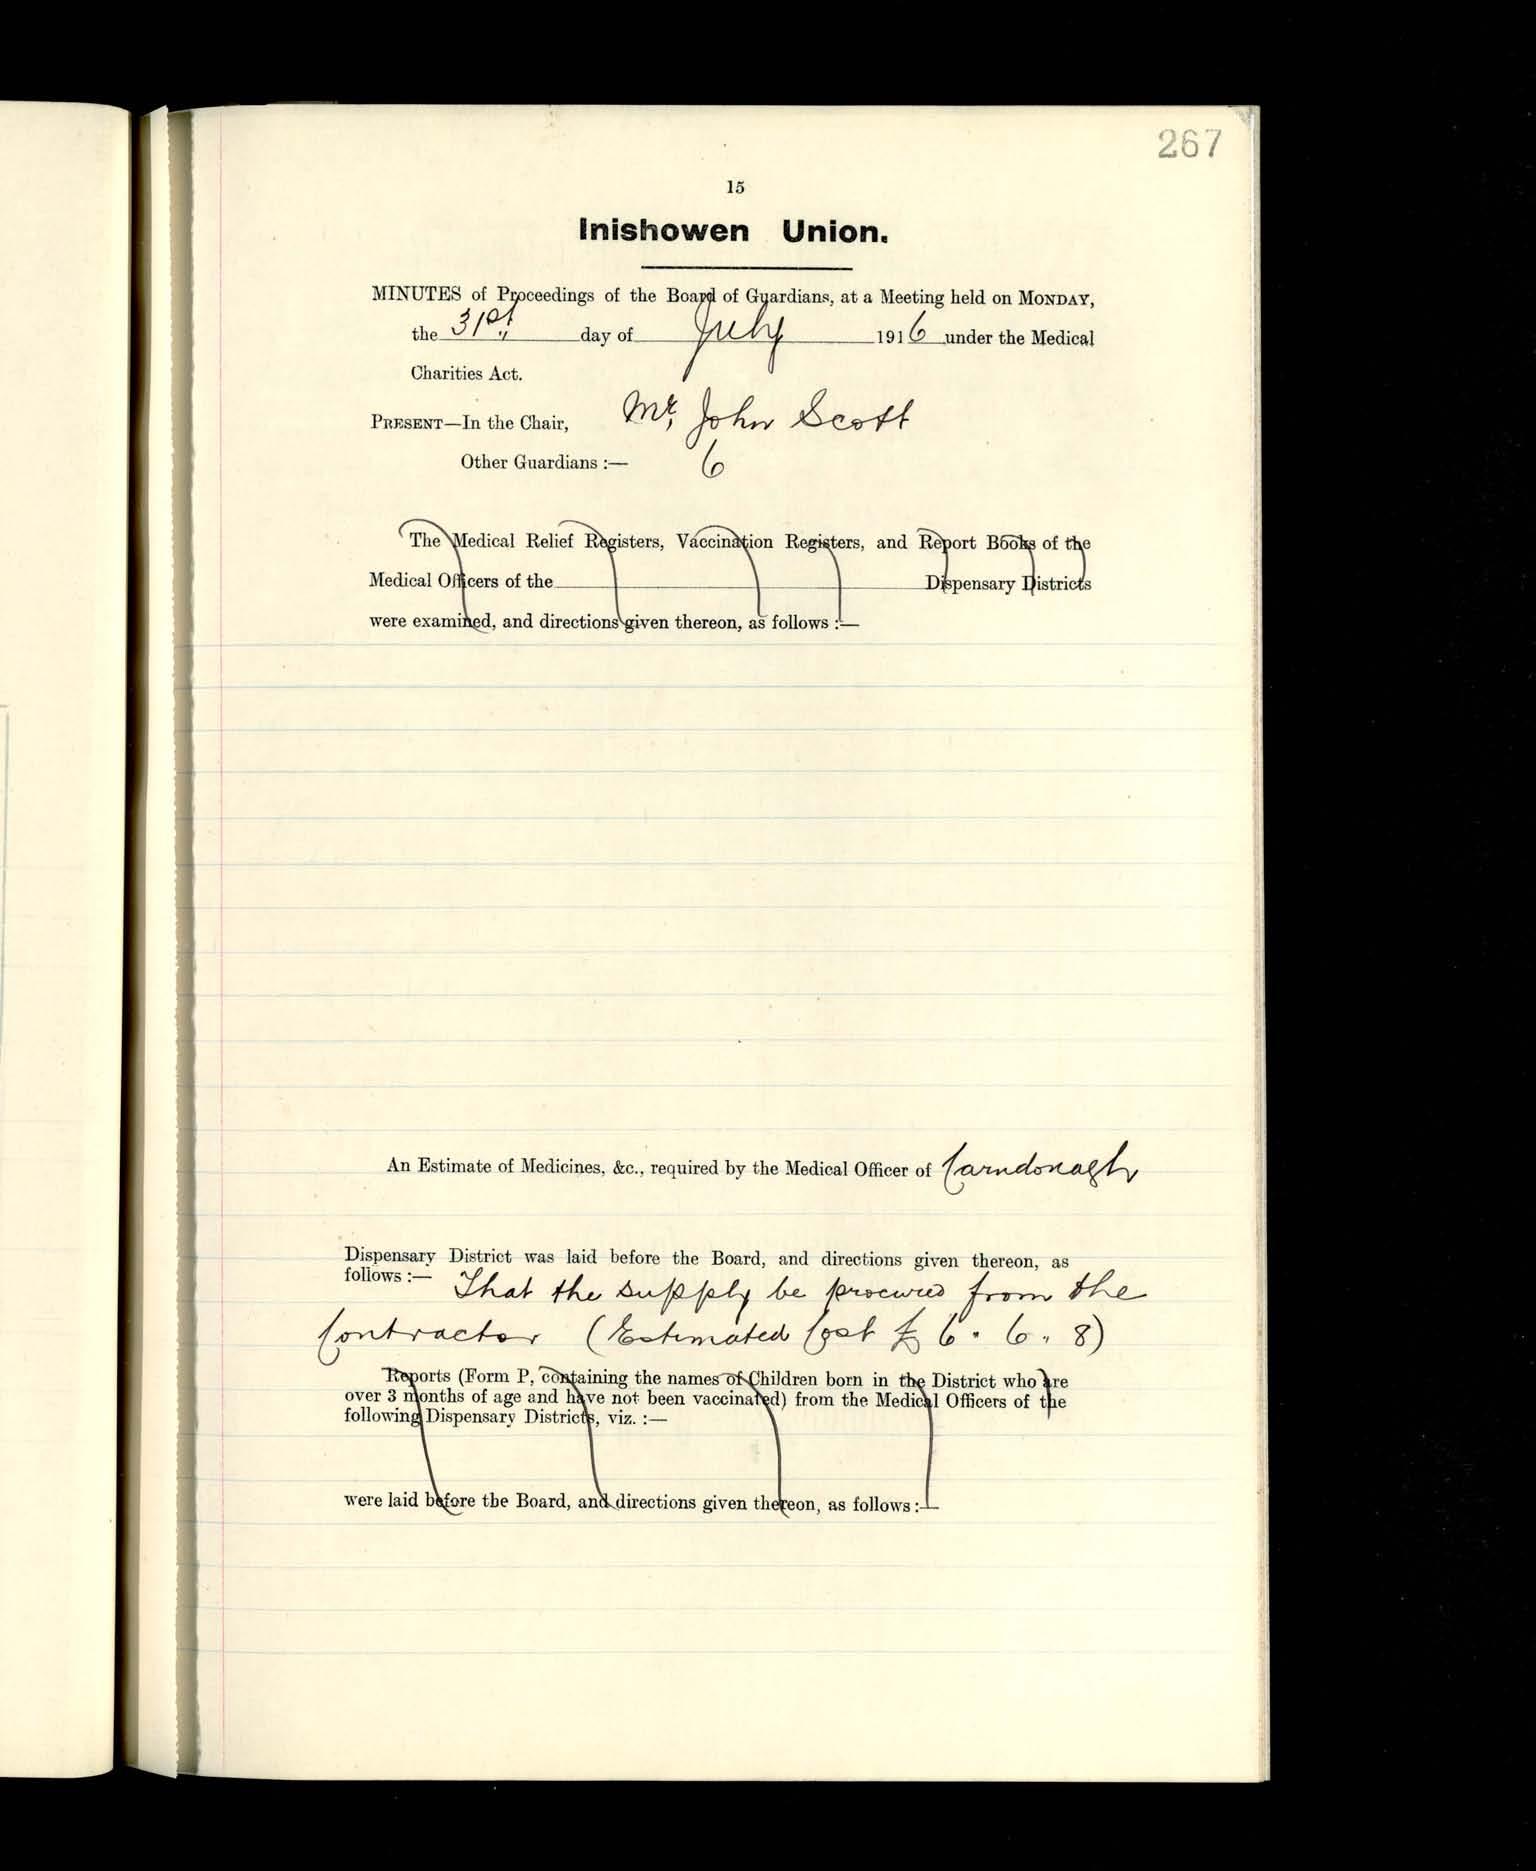 267
15
Inishowen Union.
MINUTES of Proceedings of the Board of Guardians, at a Meeting held on MONDAY,
the 31st day of July 1916 under the Medical
Charities Act.
PRESENT—In the Chair, Mr, John Scott
Other Guardians :— 6
The Medical Relief Registers, Vaccination Registers, and Report Books of the
Medical Officers of the Dispensary Districts
were examined, and directions given thereon, as follows :—
An Estimate of Medicines, &c., required by the Medical Officer of Carndonagh
Dispensary District was laid before the Board, and directions given thereon, as
follows :— That the supply be procured from the
Contractor (Estimated Cost £6 " 6 " 8)
Reports (Form P, containing the names of Children born in the District who are
over 3 months of age and have not been vaccinated) from the Medical Officers of the
following Dispensary Districts, viz. :—
were laid before the Board, and directions given thereon, as follows :—